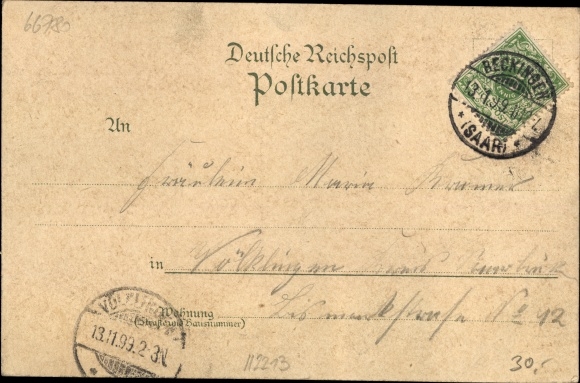 66780
Deutsche Reichspost
Postkarte
BECKINGEN
13.11.99.
* (SAAR) *
An
Fräulein Maria Kramer
in Völklingen Kreis Saarbrück
Wohnung
(Straße und Hausnummer)
Bismarckstraße No 42
VÖLKLINGEN
13.11.99.2-3N.
113213
30.-